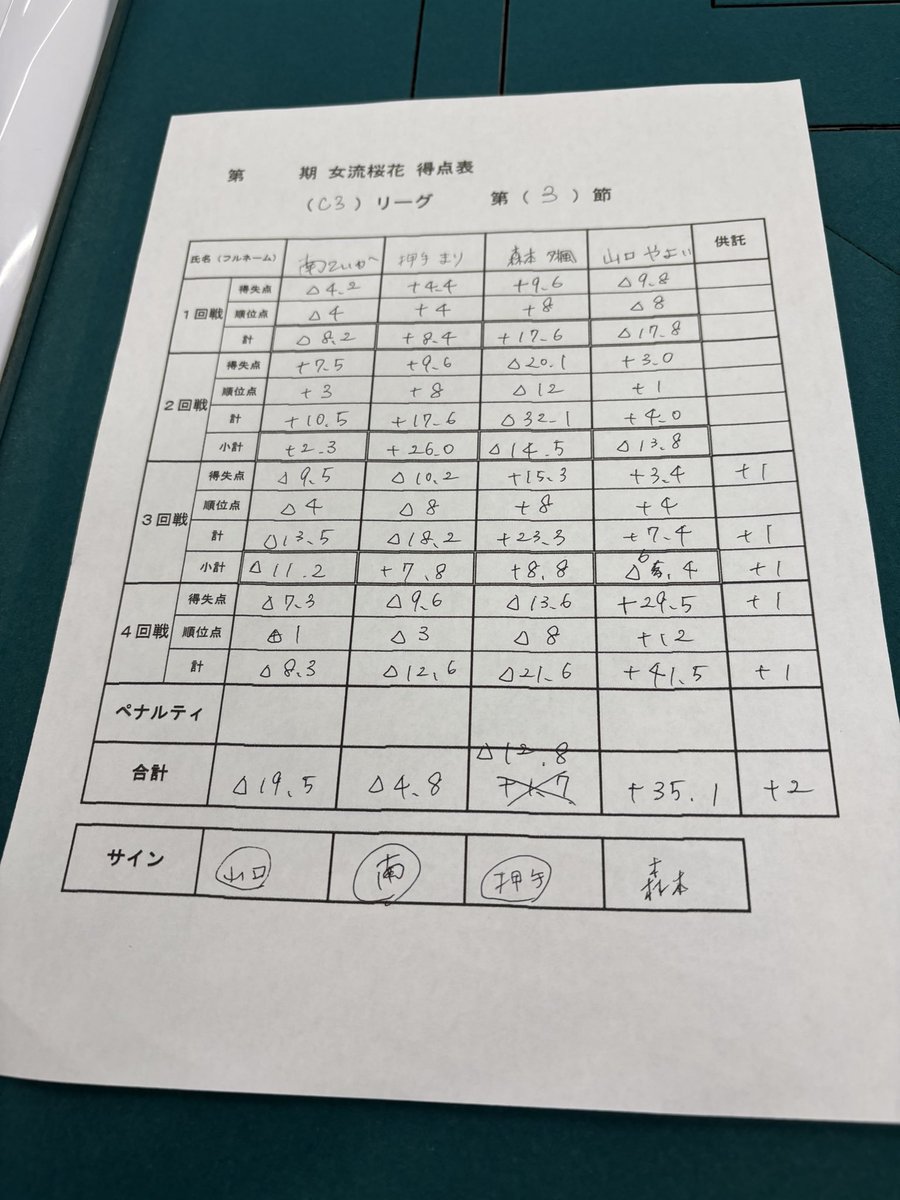 第 期 女流桜花 得点表
(C3) リーグ 第 ( 3 ) 節
氏名 (フルネーム) 押手 まり 森本 颯 山口 やよい 供託
1回戦 得失点 △4.2 +4.4 +9.6 △9.8
順位点 △4 +4 +8 △8
計 △8.2 +8.4 +17.6 △17.8
2回戦 得失点 +7.5 +9.6 △20.1 +3.0
順位点 +3 +8 △12 +1
計 +10.5 +17.6 △32.1 +4.0
小計 +2.3 +26.0 △14.5 △13.8
3回戦 得失点 △9.5 △10.2 +15.3 +3.4 +1
順位点 △4 △8 +8 +4
計 △13.5 △18.2 +23.3 +7.4 +1
小計 △11.2 +7.8 +8.8 △6.4 +1
4回戦 得失点 △7.3 △9.6 △13.6 +29.5 +1
順位点 △1 △3 △8 +12
計 △8.3 △12.6 △21.6 +41.5 +1
ペナルティ
合計 △19.5 △4.8 △12.8 +35.1 +2
サイン 山口 南 押手 森本